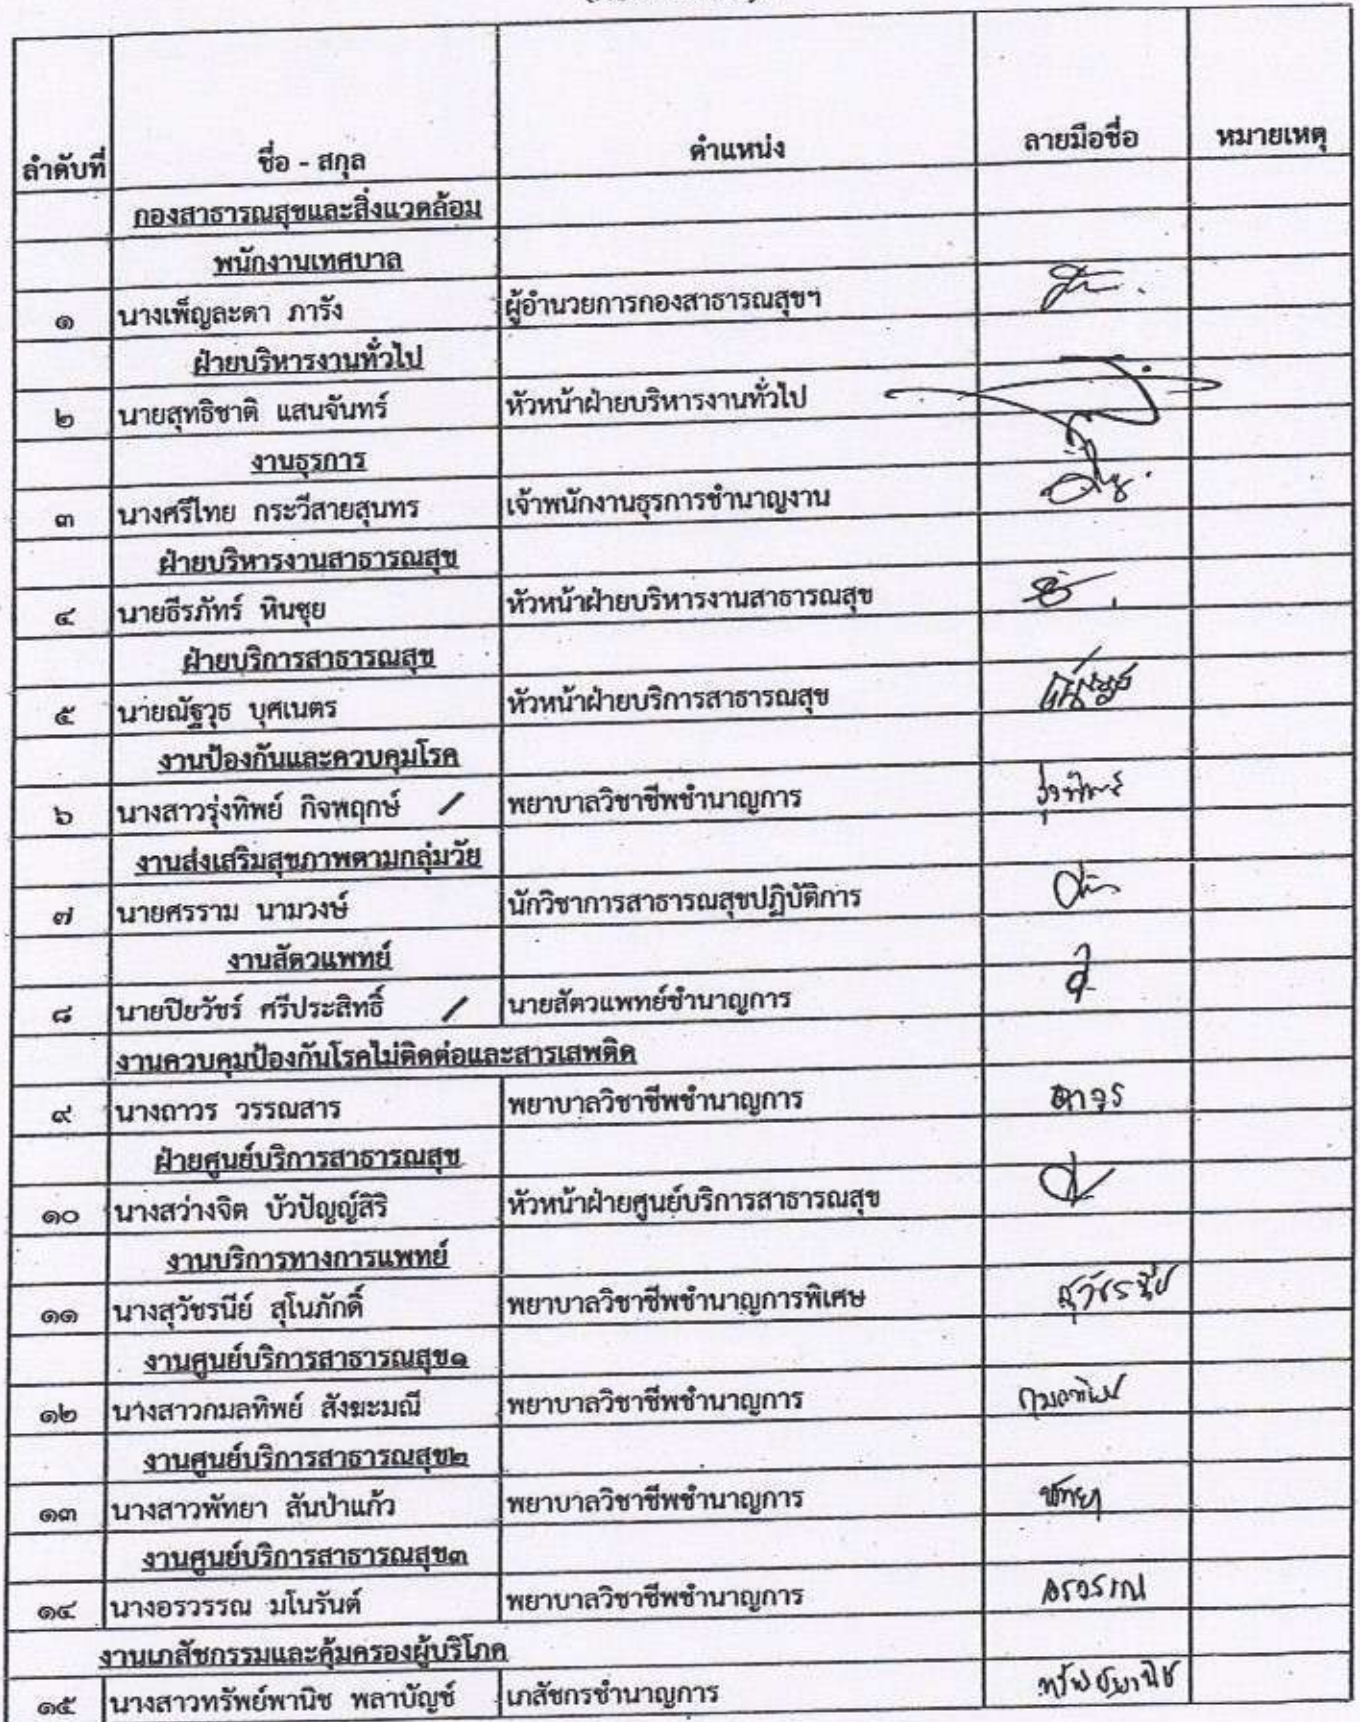 ลำดับที่ ชื่อ - สกุล ตำแหน่ง ลายมือชื่อ หมายเหตุ
กองสาธารณสุขและสิ่งแวดล้อม
พนักงานเทศบาล
๑ นางเพ็ญละดา ภารัง ผู้อำนวยการกองสาธารณสุขฯ
ฝ่ายบริหารงานทั่วไป
๒ นายสุทธิชาติ แสนจันทร์ หัวหน้าฝ่ายบริหารงานทั่วไป
งานธุรการ
๓ นางศรีไทย กระวีสายสุนทร เจ้าพนักงานธุรการชำนาญงาน
ฝ่ายบริหารงานสาธารณสุข
๔ นายธีรภัทร์ หินซุย หัวหน้าฝ่ายบริหารงานสาธารณสุข
ฝ่ายบริการสาธารณสุข
๕ นายณัฐวุธ บุศเนตร หัวหน้าฝ่ายบริการสาธารณสุข
งานป้องกันและควบคุมโรค
๖ นางสาวรุ่งทิพย์ กิจพฤกษ์ / พยาบาลวิชาชีพชำนาญการ
งานส่งเสริมสุขภาพตามกลุ่มวัย
๗ นายศรราม นามวงษ์ นักวิชาการสาธารณสุขปฏิบัติการ
งานสัตวแพทย์
๘ นายปิยวัชร์ ศรีประสิทธิ์ / นายสัตวแพทย์ชำนาญการ
งานควบคุมป้องกันโรคไม่ติดต่อและสารเสพติด
๙ นางถาวร วรรณสาร พยาบาลวิชาชีพชำนาญการ ถาวร
ฝ่ายศูนย์บริการสาธารณสุข
๑๐ นางสว่างจิต บัวปัญญ์สิริ หัวหน้าฝ่ายศูนย์บริการสาธารณสุข
งานบริการทางการแพทย์
๑๑ นางสุวัชรนีย์ สุโนภักดิ์ พยาบาลวิชาชีพชำนาญการพิเศษ สุวัชรนีย์
งานศูนย์บริการสาธารณสุข๑
๑๒ นางสาวกมลทิพย์ สังฆะมณี พยาบาลวิชาชีพชำนาญการ กมลทิพย์
งานศูนย์บริการสาธารณสุข๒
๑๓ นางสาวพัทยา สันป่าแก้ว พยาบาลวิชาชีพชำนาญการ พัทยา
งานศูนย์บริการสาธารณสุข๓
๑๔ นางอรวรรณ มโนรันต์ พยาบาลวิชาชีพชำนาญการ อรวรรณ
งานเภสัชกรรมและคุ้มครองผู้บริโภค
๑๕ นางสาวทรัพย์พานิช พลาบัญช์ เภสัชกรชำนาญการ ทรัพย์พานิช